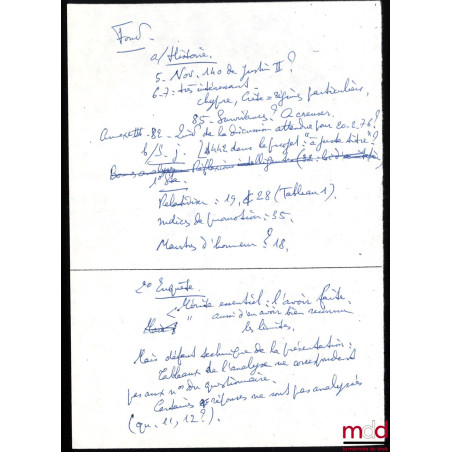 Fond.
a/ Histoire.
5. Nov. 140 de Justin II ?
6-7 = très intéressant
Chypre, Crète = régimes particuliers,
85 -              ? A creuser.
Annexe III - 82 -          de la discussion attendue pour 20-2-76 ?
b/ S. j.   § 442 dans le projet : "à juste titre" ?
1° Sta
           : 19, § 28 (Tableau 1).
indices de promotion : 35.
Meurtres d'honneur ? 18.
2° Enquête.
< Mérite essentiel : l'avoir faite.
"   aussi d'en avoir bien reconnu
les limites.
Mais défaut technique de la présentation :
Tableaux de l'analyse ne correspondent
pas aux nos du questionnaire.
Certaines réponses ne sont pas analysées
(qu. 11, 12 ?).
mdd